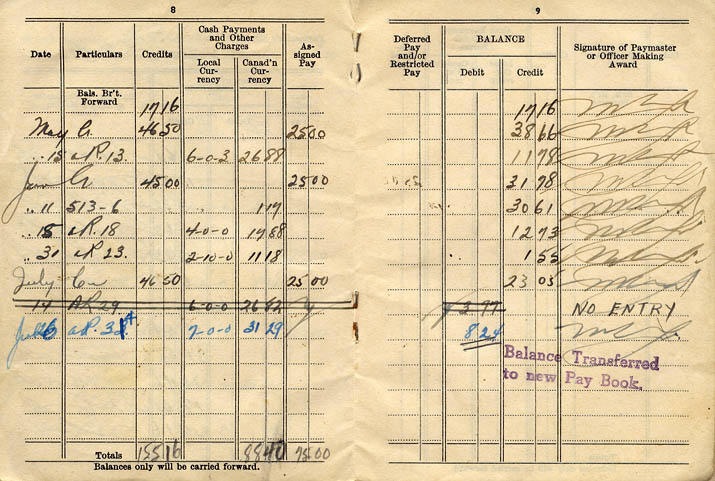 8
Date Particulars Credits Cash Payments and Other Charges Local Currency Canad'n Currency Assigned Pay
Bals. Br't. Forward 17 16
May Cr. 46 50 25 00
" 15 A.P. 13 6-0-3 26 88
June Cr 45 00 25 00
" 11 513-6 1 17
" 18 A.P. 18 4-0-0 17 88
" 31 A.P. 23 2-10-0 11 18
July Cr 46 50 25 00
14 A.P. 29 6-0-0 26 82
A.P. 32A 7-0-0 31 29
Totals 155 16 88 40 75 00
Balances only will be carried forward.
9
Deferred Pay and/or Restricted Pay BALANCE Debit Credit Signature of Paymaster or Officer Making Award
17 16
38 66
11 78
31 78
30 61
12 73
1 55
23 05
3.77 NO ENTRY
8.24
Balance Transferred
to new Pay Book.